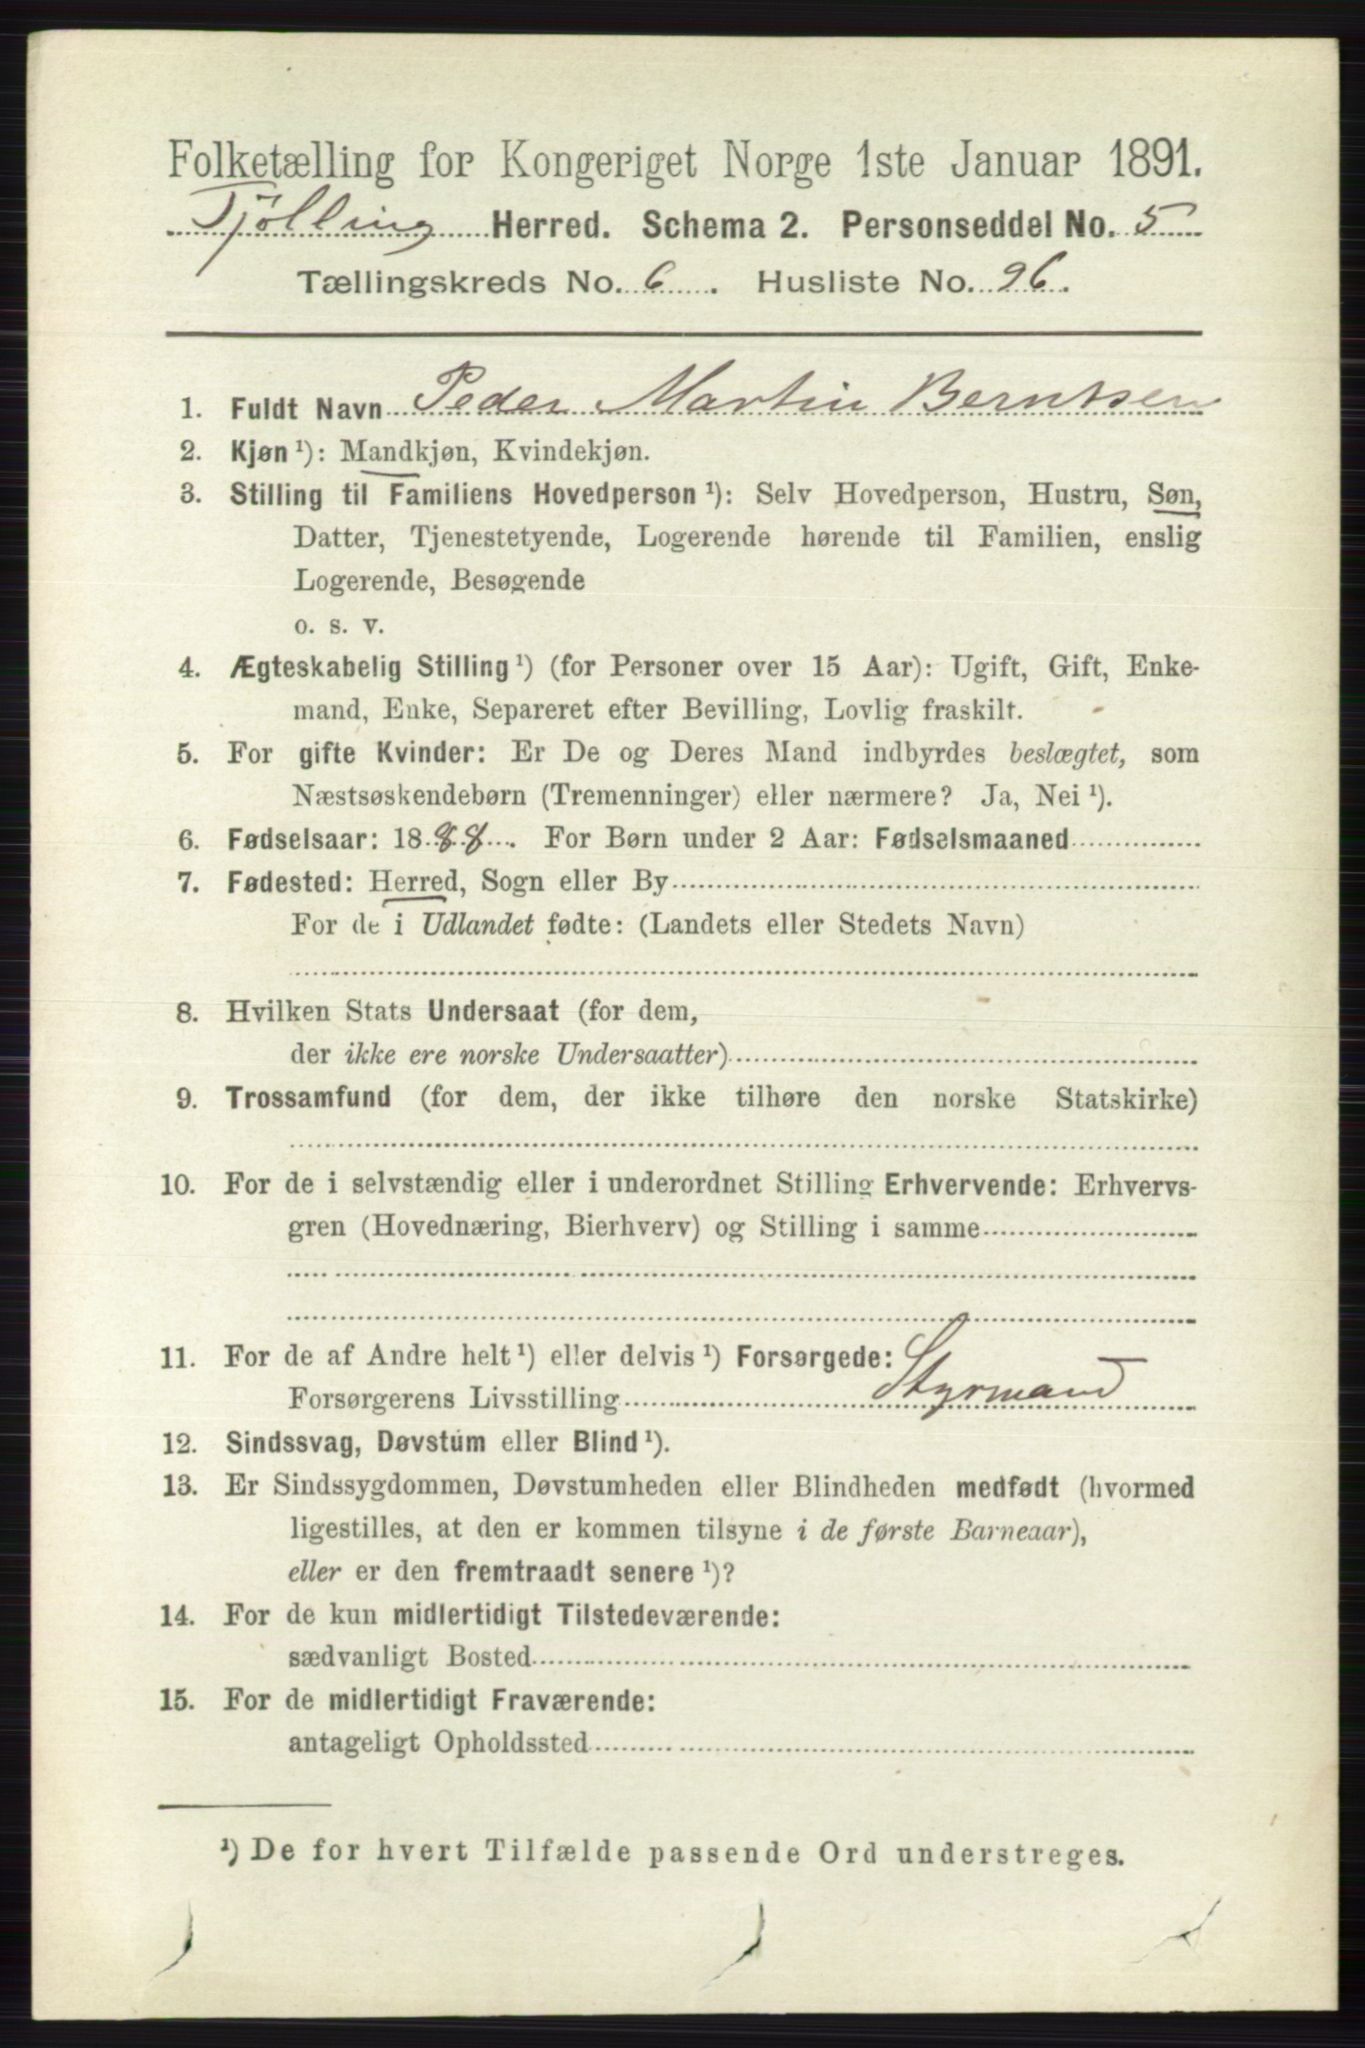 Folketælling for Kongeriget Norge 1ste Januar 1891.
Tjölling Herred. Schema 2. Personseddel No. 5
Tællingskreds No. 6. Husliste No. 96.
1. Fuldt Navn Peder Martin Berntsen
2. Kjøn¹): Mandkjøn, Kvindekjøn.
3. Stilling til Familiens Hovedperson¹): Selv Hovedperson, Hustru, Søn,
Datter, Tjenestetyende, Logerende hørende til Familien, enslig
Logerende, Besøgende
o. s. v.
4. Ægteskabelig Stilling¹) (for Personer over 15 Aar): Ugift, Gift, Enke-
mand, Enke, Separeret efter Bevilling, Lovlig fraskilt.
5. For gifte Kvinder: Er De og Deres Mand indbyrdes beslægtet, som
Næstsøskendebørn (Tremenninger) eller nærmere? Ja, Nei¹).
6. Fødselsaar: 1888. For Børn under 2 Aar: Fødselsmaaned
7. Fødested: Herred, Sogn eller By
For de i Udlandet fødte: (Landets eller Stedets Navn)
8. Hvilken Stats Undersaat (for dem,
der ikke ere norske Undersaatter)
9. Trossamfund (for dem, der ikke tilhøre den norske Statskirke)
10. For de i selvstændig eller i underordnet Stilling Erhvervende: Erhvervs-
gren (Hovednæring, Bierhverv) og Stilling i samme
11. For de af Andre helt¹) eller delvis¹) Forsørgede:
Forsørgerens Livsstilling Styrmand
12. Sindssvag, Døvstum eller Blind¹).
13. Er Sindssygdommen, Døvstumheden eller Blindheden medfødt (hvormed
ligestilles, at den er kommen tilsyne i de første Barneaar),
eller er den fremtraadt senere¹)?
14. For de kun midlertidigt Tilstedeværende:
sædvanligt Bosted
15. For de midlertidigt Fraværende:
antageligt Opholdssted
¹) De for hvert Tilfælde passende Ord understreges.